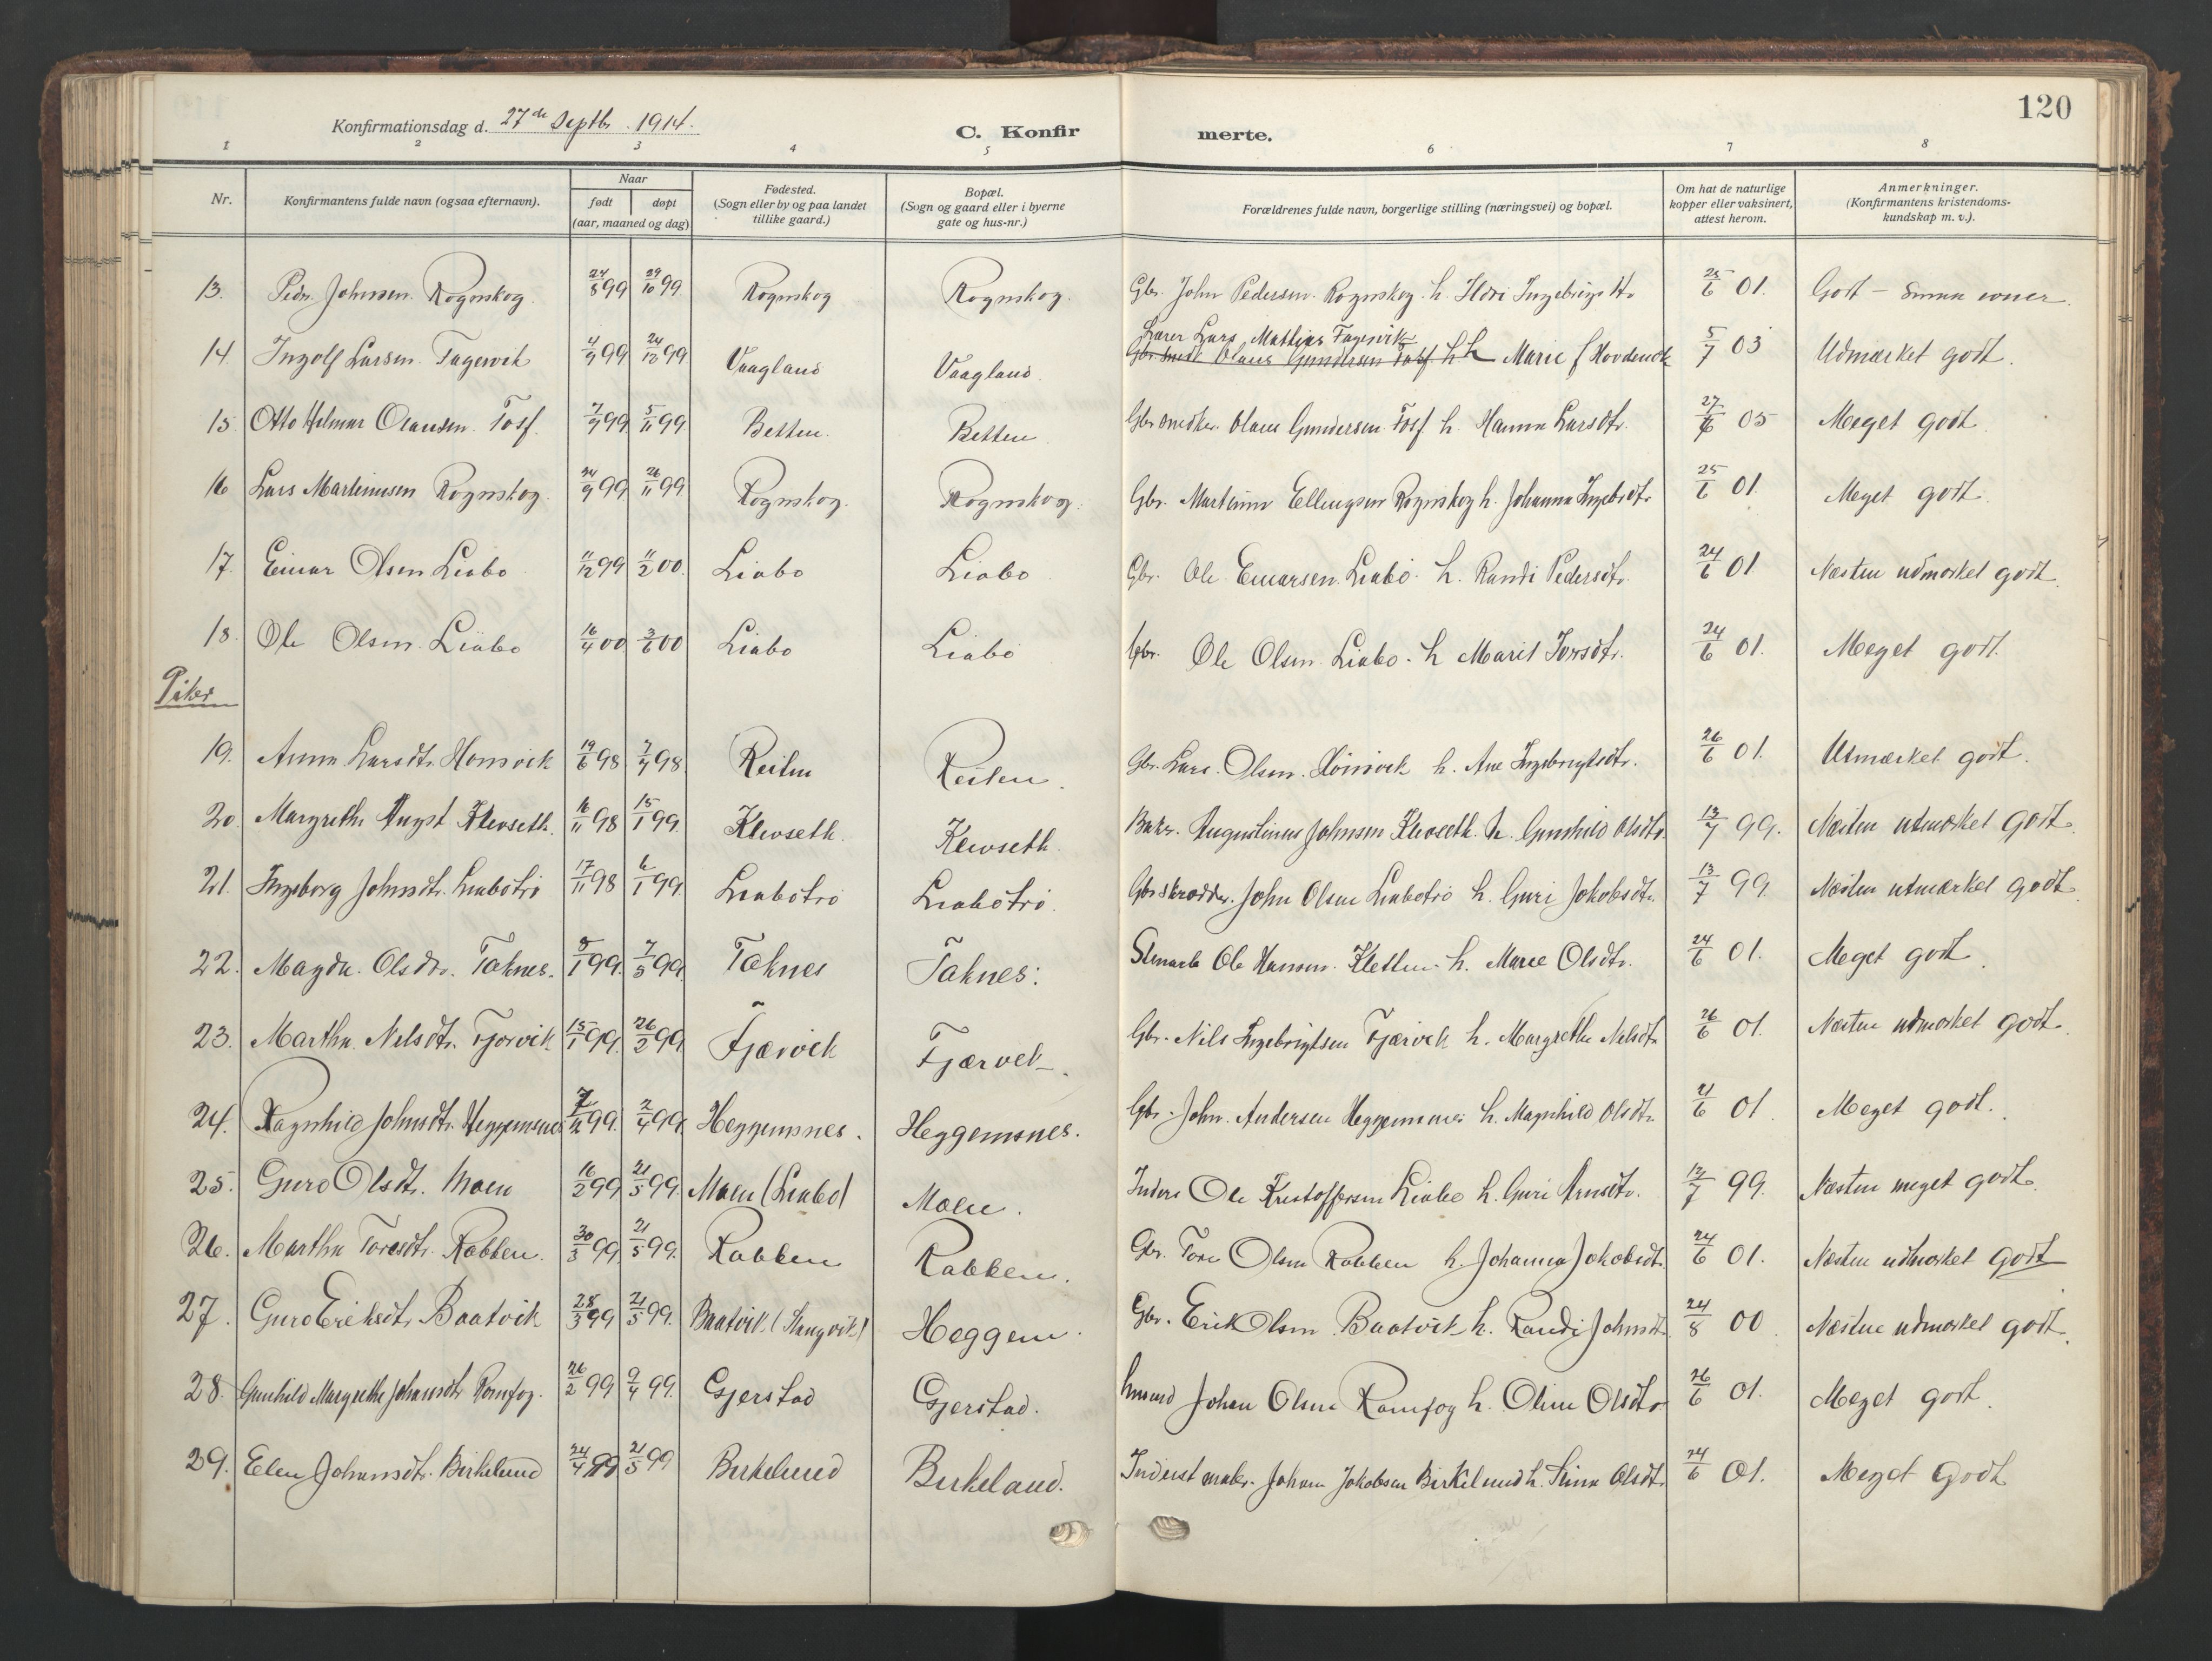 120
Konfirmationsdag d. 27de Septbr. 1914.
C. Konfir merte.
1 2 3 4 5 6 7 8
Nr.
Konfirmantens fulde navn (ogsaa efternavn).
Naar
født døpt
(aar, maaned og dag)
Fødested.
(Sogn eller by og paa landet
tillike gaard.)
Bopæl.
(Sogn og gaard eller i byerne
gate og hus-nr.)
Forældrenes fulde navn, borgerlige stilling (næringsvei) og bopæl.
Om hat de naturlige
kopper eller vaksinert,
attest herom.
Anmerkninger.
(Konfirmantens kristendoms-
kundskap m. v.).
13. Peder Johnsen Rognskog. 24/8 99 29/10 99 Rognskog Rognskog. Gbr. John Pedersen Rognskog h. Ildri Ingebrigtsdtr 25/6 01. Godt – Smaa evner.
Lærer Lars Mathias Fagervik
14. Ingolf Larsen Fagervik 4/9 99 24/12 99 Vaagland Vaagland. h Marie f Hovdenak 5/7 03 Udmærket godt.
15. Otto Helmer Olausen Tosf. 7/9 99 5/11 99 Betten. Betten. Gbr snedker Olaus Gundersen Tosf h. Hanna Larsdtr. 27/6 05 Meget godt
16 Lars Martinusen Rognskog. 24/9 99 26/11 99 Rognskog. Rognskog. Gbr. Martinus Ellingsen Rognskog h. Johanna Ingebrdtr 25/6 01. Meget godt
17. Einar Olsen Liabø 11/12 99 11/2 00. Liabø Liabø Gbr. Ole Einarsen Liabø. h. Randi Pedersdtr. 24/6 01 Næsten udmærket godt.
18. Ole Olsen Liabø 16/4 00 3/6 00 Liabø Liabø Gbr. Ole Olsen Liabø. h Marit Iversdtr. 24/6 01. Meget godt.
Piker
19. Anna Larsdtr. Honsvik 19/6 98 7/9 98 Reiten Reiten. Gbr. Lars Olsen Hönsvik h. Ane Ingebrigtsdtr. 26/6 01. Utmærket godt.
20. Margrethe August Klevseth. 16/11 98 15/1 99. Klevseth. Klevseth. Baker. Augustinus Johnsen Klevseth. h. Gunhild Olsdtr. 13/7 99. Næsten utmærket godt.
21. Ingeborg Johnsdtr. Liabötrö 17/11 98 6/1 99. Liabötrö Liabötrö. Gbr skrædder. John Olsen Liabøtrö h. Guri Jakobsdtr. 13/7 99 Næsten utmærket godt.
22. Magda Olsdtr. Taknes. 5/1 99. 7/5 99 Taknes Taknes: Ole Hansen Kletten h. Marie Olsdtr. 24/6 01. Meget godt.
23. Martha Nilsdtr. Fjærvik 15/1 99. 26/2 99 Fjærvik Fjærvik. Gbr. Nils Ingebrigtsen Fjærvik h. Margrethe Nilsdtr 26/6 01. Næsten udmærket godt.
24. Ragnhild Johnsdtr. Heggemsnes 7/12 99. 2/4 99 Heggemsnes. Heggemsnes. Gbr. John Andersen Heggemsnes h. Magnhild Olsdtr. 21/6 01 Meget godt.
25. Guro Olsdtr. Moen 16/2 99 21/5 99. Moen (Liabø) Moen. Inders Ole Kristoffersen Liabø h. Guri Arnsdtr. 12/7 99. Næsten meget godt.
26. Martha Toresdtr. Rabben. 30/3 99. 21/5 99. Rabben Rabben. Gbr. Tore Olsen Rabben h. Johanna Jakobsdtr. 24/6 01. Næsten udmærket godt
27. Guro Eriksdtr Baatvik 28/3 99 21/5 99. Baatvik (Stangvik) Heggem. Gbr. Erik Olsen Baatvik h. Randi Johnsdtr. 24/8 00 Næsten udmærket godt.
28. Gunhild Margrethe Johansdtr Romfog. 26/2 99 9/4 99. Gjerstad Gjerstad. Johan Olsen Romfog h. Oline Olsdtr 26/6 01. Meget godt.
29. Elen Johansdtr. Birkelund 24/4 99 21/5 99 Birkelund Birkeland. Inderst maler. Johan Jakobsen Birkelund h. Stina Olsdtr. 24/6 01. Meget Godt